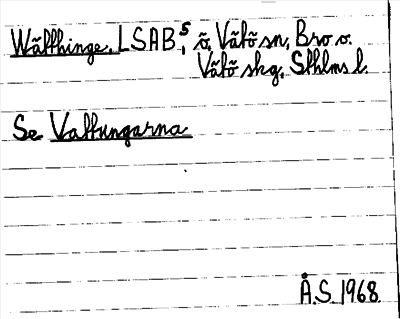 Wätthinge, LSAB⁵, ö, Vätö sn, Bro o.
Vätö skg, Sthlms l.
Se Vattungarna
Å.S 1968.